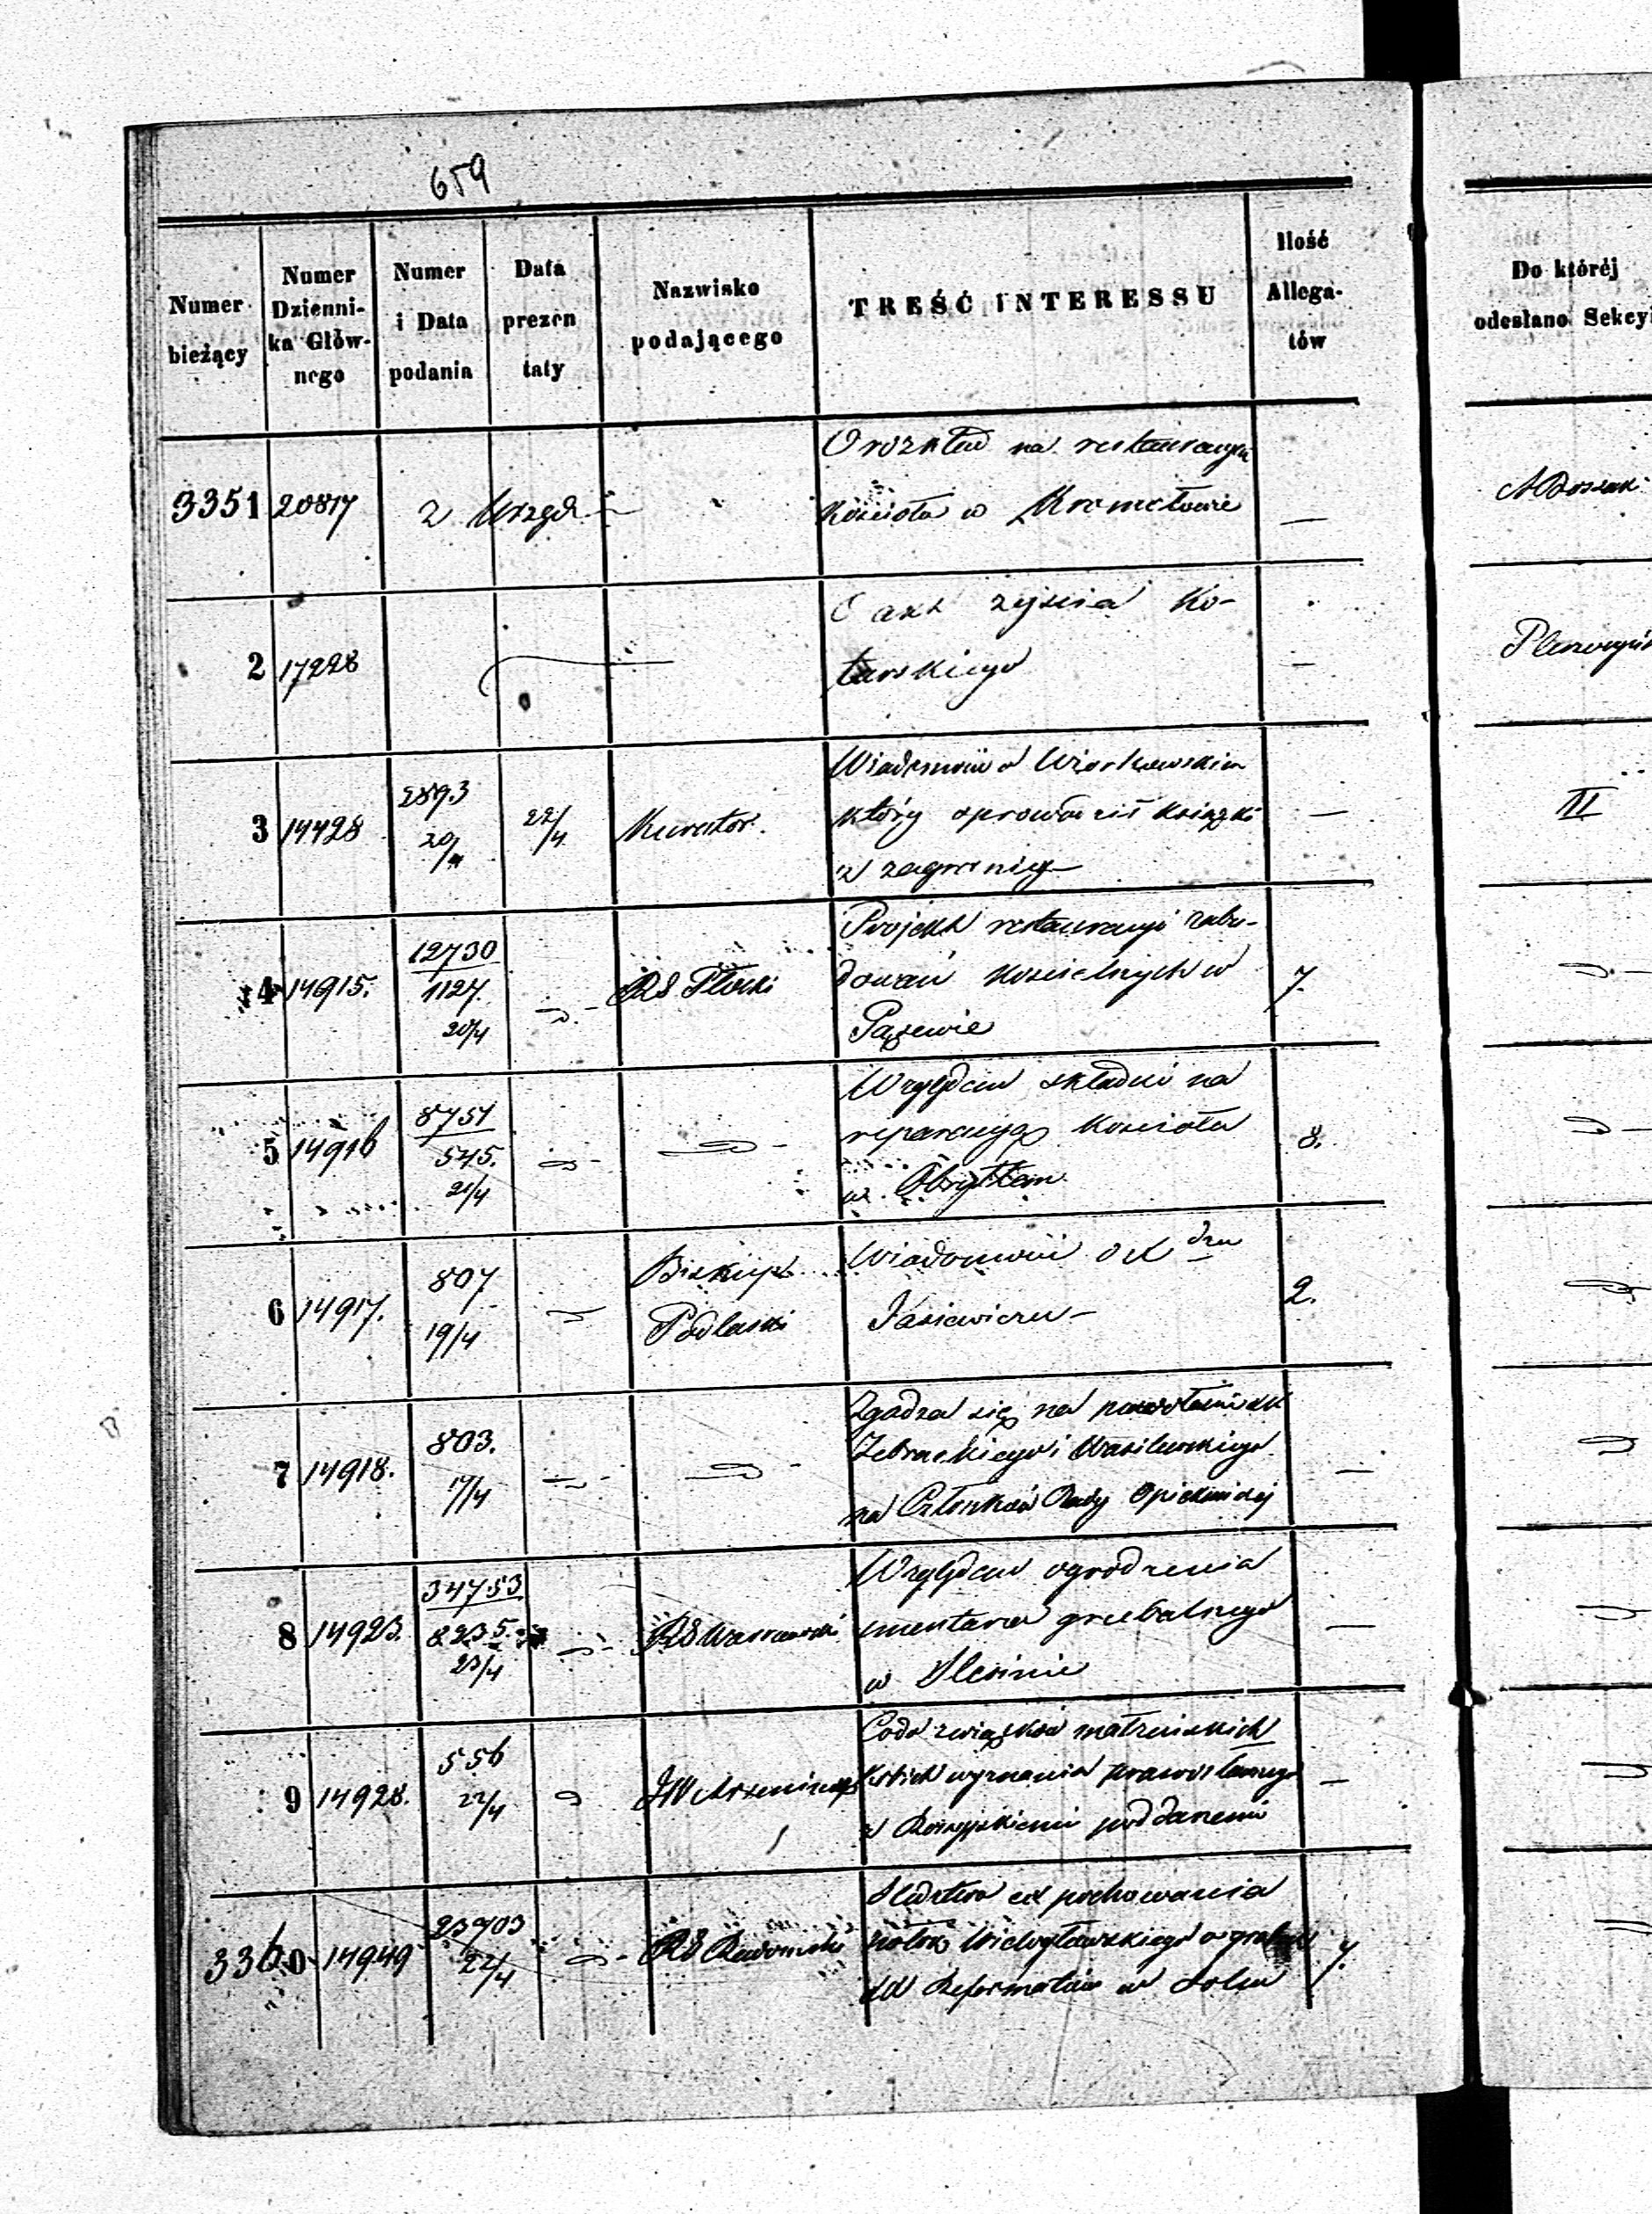 659
Numer bieżący
Numer Dzienni-ka Głów-nego
Numer i Data podania
Data prezen taty
Nazwisko podającego
TREŚĆ INTERESSU
Ilość Allega-tów
Do któréj odesłano Sekcyi
3351 20817 z Urzędu
O rozkład na restauracyą
kościoła w Kromołowie —
2 17228
O akt zejścia Ko-
tarskiego —
3 14428 2893 20/4 22/4 Kurator.
Wiadomość o
który sprowadził książki —
z zagranicy
II
4 14915. 12730 1127. 20/4 RG Płocki
Projekt restauracyi zabu-
dowań kościelnych w 7.
5 14916 8751 545. 21/4
Względem składki na
reparacyą kościoła 8.
w Obrytłem
6 14917. 807 19/4 Biskup Podlaski
Wiadomość o X dzu
Jasiewiczu — 2.
7 14918. 803. 17/4
Zgadza się na
Żebrackiego i Wasilewskiego —
na Członków Rady Opiekuńczej
8 14923. 34753 8235. 23/4 RG Warszawski
Względem ogrodzenia
cmentarza grzebalnego —
w Slesinie
9 14928. 556 22/4 JW Arseniusz
Co do związków małżeńskich
wyznania prawosławnego —
z Rossyjskiemi poddanemi
3360 14949 23903 22/4 RG Radomski
Śledztwo co do pochowania
zwłok Wielogławskiego w
XX Reformatów w Solcu 7.